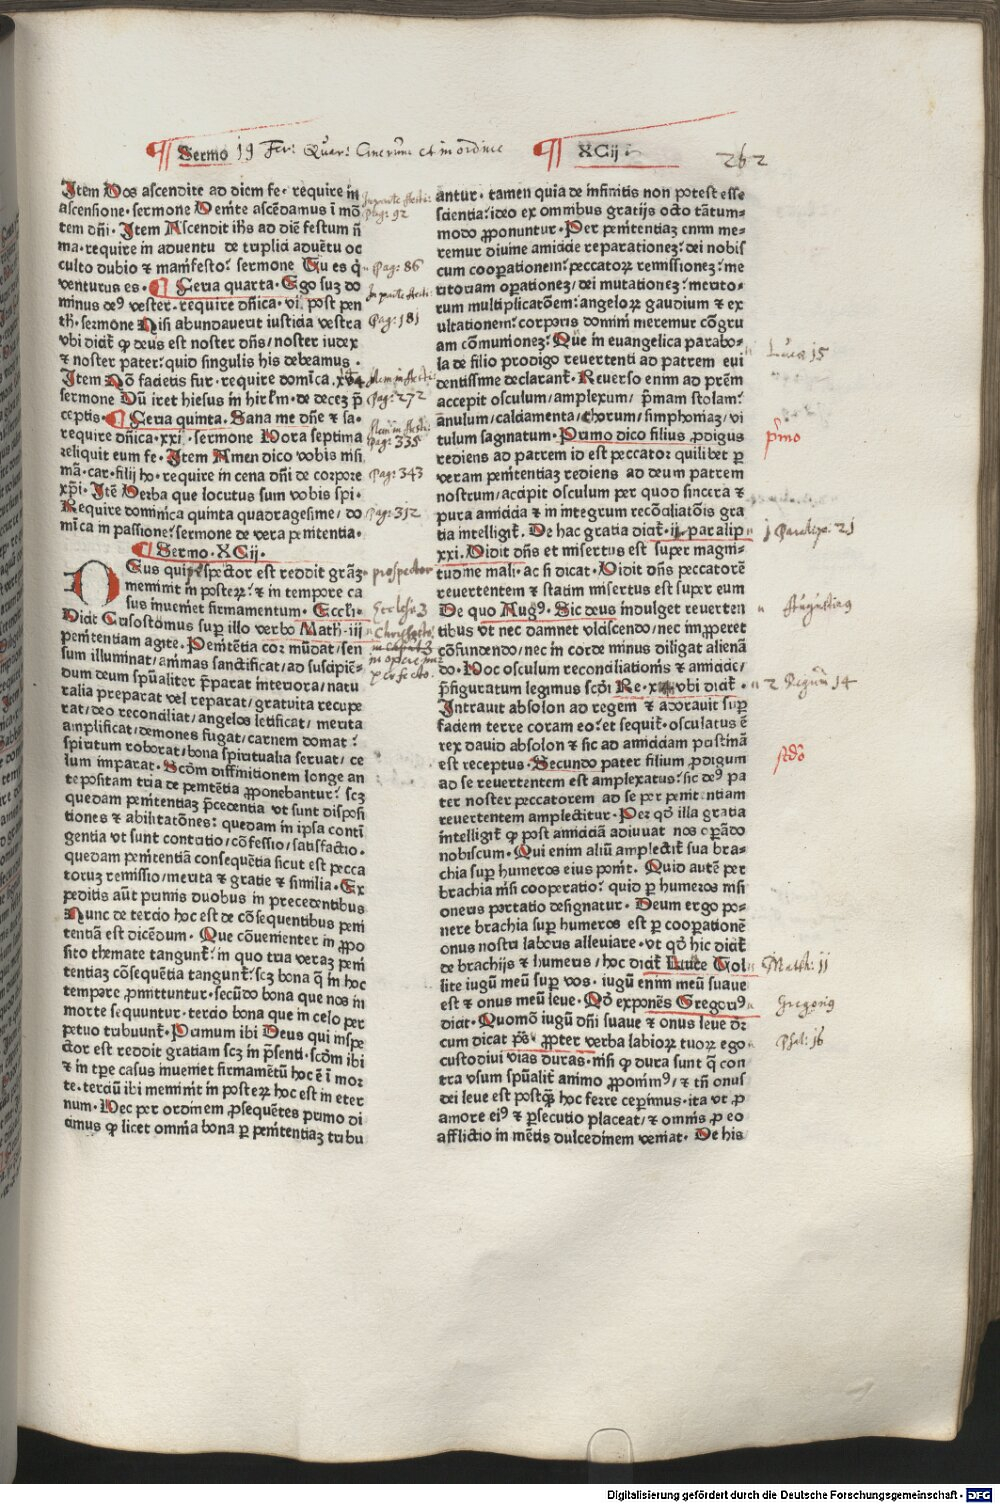 Sermo 19 Fer: Quar: Cinerum et in ordine
XCij.
262
Item Uos ascendite ad diem fe. require in
ascensione. sermone Uenite ascēdamus ī mō
tem dn̄i. Item Ascendit ih̄s ad diē festum n̄
ma. require in aduentu de triplici aduētu oc
culto dubio ⁊ manifesto: sermone Tu es q̇
venturus es. ¶ Feria quarta. Ego suꝫ do
minus deꝰ vester. require dn̄ica. vi. post pen
th̄. sermone Nisi abundauerit iusticia vestra
vbi dicit̄ ꝙ deus est noster dn̄s/noster iudex
⁊ noster pater: quid singulis his debeamus.
Item Nō facietis fur. require domīca.
sermone Dū iret hiesus in hirl̄m. de deceꝫ p̄
ceptis. ¶ Feria quinta. Sana me dn̄e ⁊ sa.
require dn̄ica.xxi. sermone Hora septima
reliquit eum fe. Item Amen dico vobis nisi
mā. car. filij ho. require in cena dn̄i de corpore
xp̄i. Itē Uerba que locutus sum vobis spi.
Require dominica quinta quadragesime/do
mīca in passione: sermone de vera penitentia.
¶ Sermo. XCij.
DEus qui īspector est reddit grāꝫ
meminit in posteꝝ: ⁊ in tempore ca
sus inueniet firmamentum. Eccli.
Dicit Crisostomus suꝑ illo verbo Math̄.iij
penitentiam agite. Penitētia coꝛ mūdat/sen
sum illuminat/animas sanctificat/ad suscipiē-
dum deum spūaliter p̄parat interiora/natu
ralia preparat vel reparat/gratuita recupe
rat/deo reconciliat/angelos letificat/merita
amplificat/demones fugat/carnem domat:
spiritum roborat/bona spiritualia seruat/ce
lum imparat. Scd̄m diffinitionem longe an
te positam tria de penitētia ꝓponebantur: scꝫ
quedam penitentiaꝫ p̄cedentia vt sunt disposi
tiones ⁊ abilitatōnes: quedam in ipsa conti
gentia vt sunt contritio/cōfessio/satisfactio.
quedam penitentiā consequētia sicut est pecca
toꝝ remissio/merita ⁊ gratie ⁊ similia. Ex
peditis aūt primis duobus in precedentibus
Nunc de tercio hoc est de cōsequentibus peni
tentiā est dicēdum. Que cōuenienter in ꝓpo
sito themate tangunt̄: in quo tria veraꝫ peni
tentiaꝫ cōsequētia tangunt̄: scꝫ bona q̄ in hoc
tempore ꝓmittuntur. secūdo bona que nos in
morte sequuntur. tercio bona que in celo per
petuo tribuunt̄. Primum ibi Deus qui inspe
ctor est reddit gratiam scꝫ in p̄senti. scd̄m ibi
⁊ in tp̄e casus inueniet firmamētū hoc ē ī moꝛ
te. terciū ibi meminit in posteꝝ hoc est in eter
num. Hec per ordinem ꝓsequētes primo di
cimus ꝙ licet omnia bona ꝑ penitentiaꝫ tribu
antur. tamen quia de infinitis non potest esse
scientia: ideo ex omnibus gratijs octo tātum-
modo ꝓponuntur. Per penitentiaꝫ enim me-
remur diuine amicicie reparationeꝫ: dei nobis
cum cooꝑationem: peccatoꝝ remissioneꝫ: me
ritoriam oꝑationeꝫ/dei mutationeꝫ: merito-
rum multiplicatōem: angeloꝝ gaudium ⁊ ex
ultationem: corporis domini meremur cōgru
am cōmunioneꝫ: Que in euangelica parabo-
la de filio prodigo reuertenti ad patrem eui
dentissime declarant̄. Reuerso enim ad prēm
accepit osculum/amplexum/ p̄mam stolam:
anulum/calciamenta/chorum/simphoniaꝫ/vi
tulum saginatum. Primo dico filius ꝓdigus
rediens ad patrem id est peccator quilibet ꝑ
veram penitentiaꝫ rediens ad deum patrem
nostrum/accipit osculum per quod sincera ⁊
pura amicicia ⁊ in integrum recōciliatōis gra
tia intelligit̄. De hac gratia dicit̄.ij. paralip
xxi. Uidit dn̄s et misertus est super magni-
tudine mali. ac si dicat. Uidit dn̄s peccatorē
reuertentem ⁊ statim misertus est super eum
De quo Augꝰ. Sic deus indulget reuerten
tibus vt nec damnet vlciscendo/nec imꝓperet
cōfundendo/nec in corde minus diligat alienā
do. Hoc osculum reconciliationis ⁊ amicicie/
p̄figuratum legimus scd̄i Re. vbi dicit̄.
Intrauit absolon ad regem ⁊ adorauit suꝑ
faciem terre coram eo: et sequit̄. osculatus ē
rex dauid absolon ⁊ sic ad amiciciam pristinā
est receptus. Secundo pater filium ꝓdigum
ad se reuertentem est amplexatus: sic deꝰ pa
ter noster peccatorem ad se per penitentiam
reuertentem amplectitur. Per qd̄ illa gratia
intelligit̄ ꝙ post amiciciā adiuuat nos cꝑādo
nobiscum. Qui enim aliū amplectit̄ sua bra-
chia suꝑ humeros eius ponit. Quid autē per
brachia nisi cooperatio: quid ꝑ humeros nisi
oneris portatio designatur. Deum ergo po-
nere brachia suꝑ humeros est ꝑ cooperationē
onus nostri laboris alleuiare. vt qd̄ hic dicit̄
de brachijs ⁊ humeris/hoc dicit̄ Luce Tol
lite iugū meū suꝑ vos. iugū enim meū suaue
est ⁊ onus meū leue. Qd̄ exponēs Gregoriꝰ
dicit. Quomō iugū dn̄i suaue ⁊ onus leue dr̄
cum dicat ps̄. ꝓpter verba labioꝝ tuoꝝ ego
custodiui vias duras. nisi ꝙ dura sunt q̄ con
tra vsum spūalit̄ animo ꝓponimꝰ/ ⁊ tn̄ onus
dei leue est postq̄ꝫ hoc ferre ceperimus. ita vt ꝓ
amore eiꝰ ⁊ ꝑsecutio placeat/⁊ omnis ꝓ eo
afflictio in mētis dulcedinem veniat. De his
Pag: 92
Pag: 86
Pag: 181
Pag: 272
pag: 335
Pag: 343
Pag: 352
prospector
Ecclesi: 3
Chrysosto:
in opere im-
perfecto.
Lucæ 15
p̄mo
2 Paralipo: 21
Augustinꝰ
2 Regum 14
scd̄o
Matth: 11
Gregoriꝰ
Psal: 16
Digitalisierung gefördert durch die Deutsche Forschungsgemeinschaft - DFG